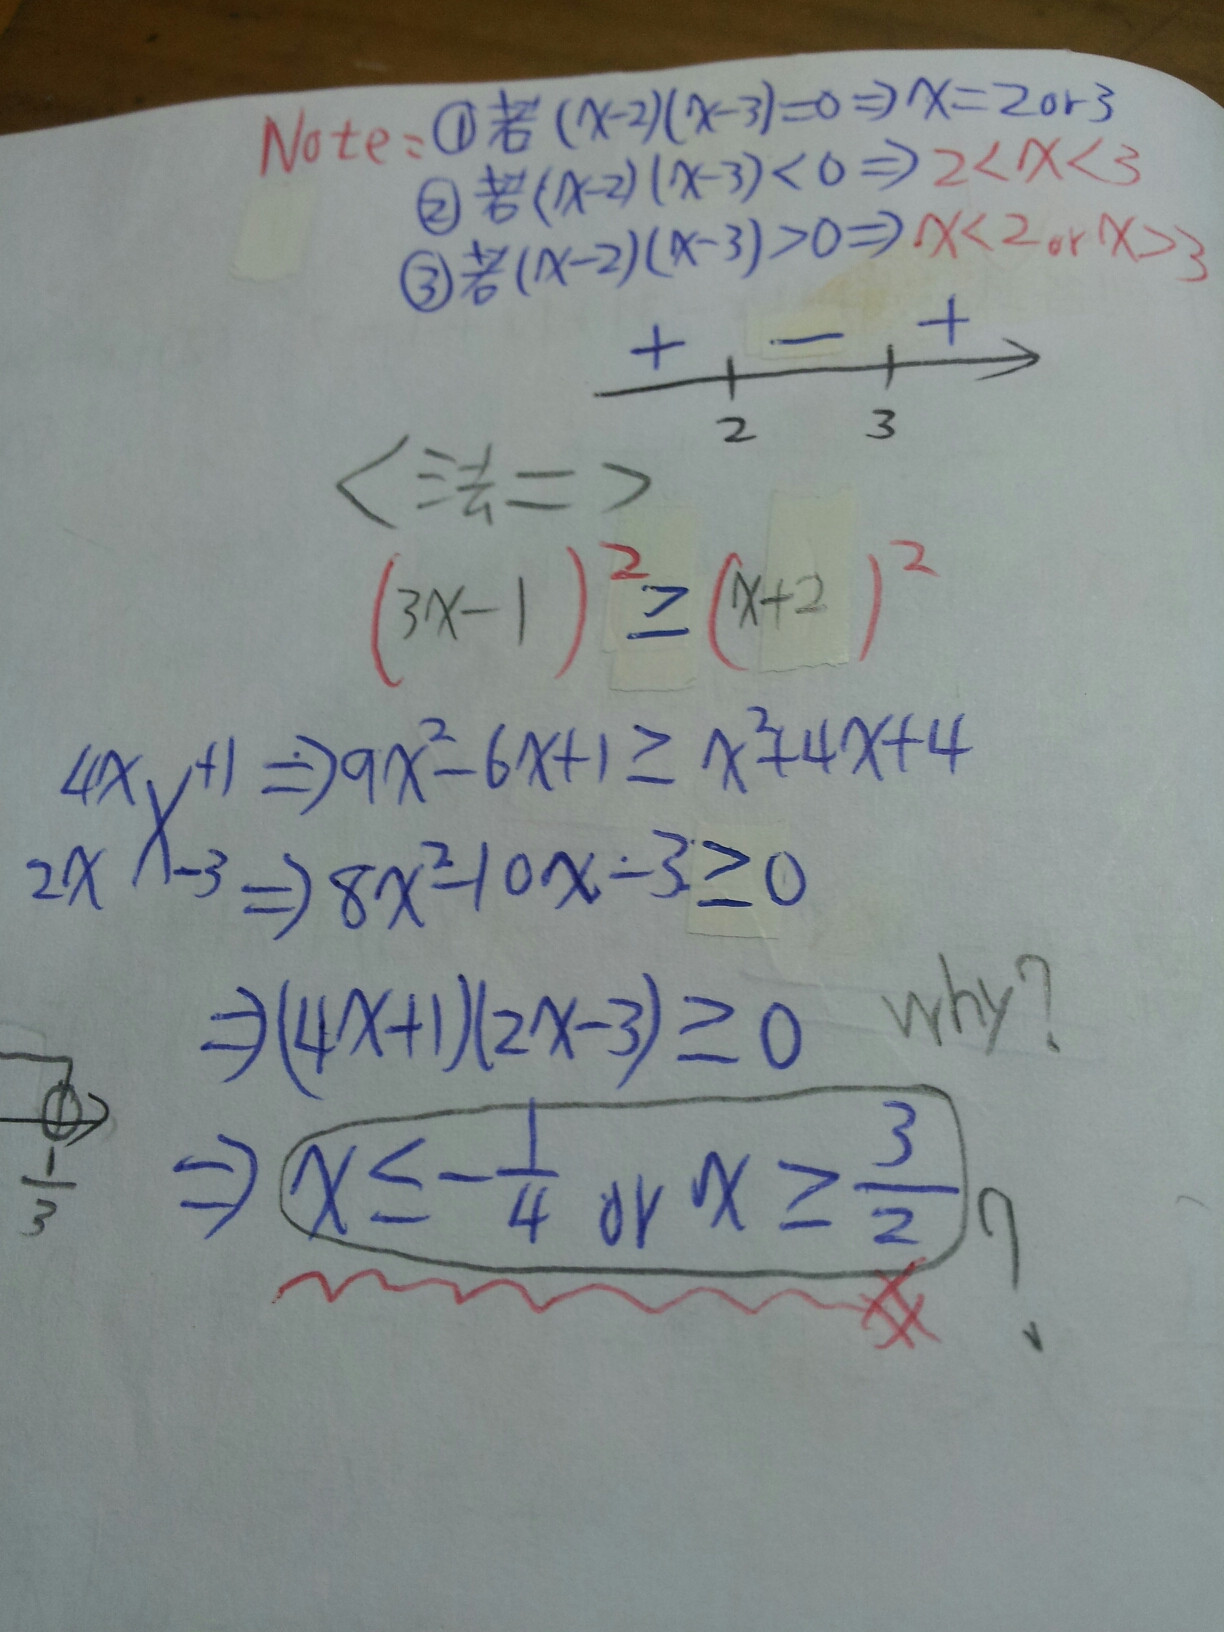 Note: ①若(x-2)(x-3)=0⇒x=2or3
②若(x-2)(x-3)<0⇒2<x<3
③若(x-2)(x-3)>0⇒x<2 or x>3
+ − +
2 3
<法二>
(3x-1)²≥(x+2)²
4x +1 ⇒9x²-6x+1≥x²+4x+4
2x -3 ⇒8x²-10x-3≥0
⇒(4x+1)(2x-3)≥0 why?
⇒x≤-1/4 or x≥3/2 ?
1/3